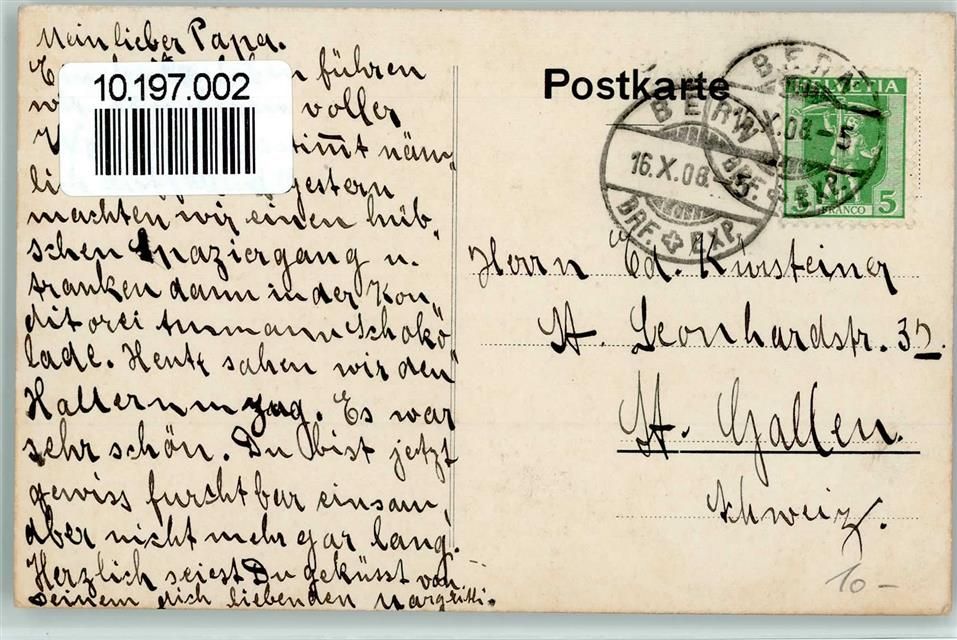 Mein lieber Papa.
führen
10.197.002
voller
näm-
gestern
machten wir einen hüb-
schen Spaziergang u.
tranken dann in der Kon-
ditorei Schoko-
lade. Heute sahen wir den
Hallerumzug. Es war
sehr schön. Du bist jetzt
gewiss furchtbar einsam,
aber nicht mehr gar lang.
Herzlich seiest Du geküsst von
Deinem dich liebenden Margritli.
Postkarte
BERN
16.X.08.-5
BRF. EXP.
BERN
X.08.-5
BRF. EXP.
HELVETIA
5 FRANCO 5
Herrn Ed. Kürsteiner
St. Leonhardstr. 35.
St. Gallen.
Schweiz.
10-